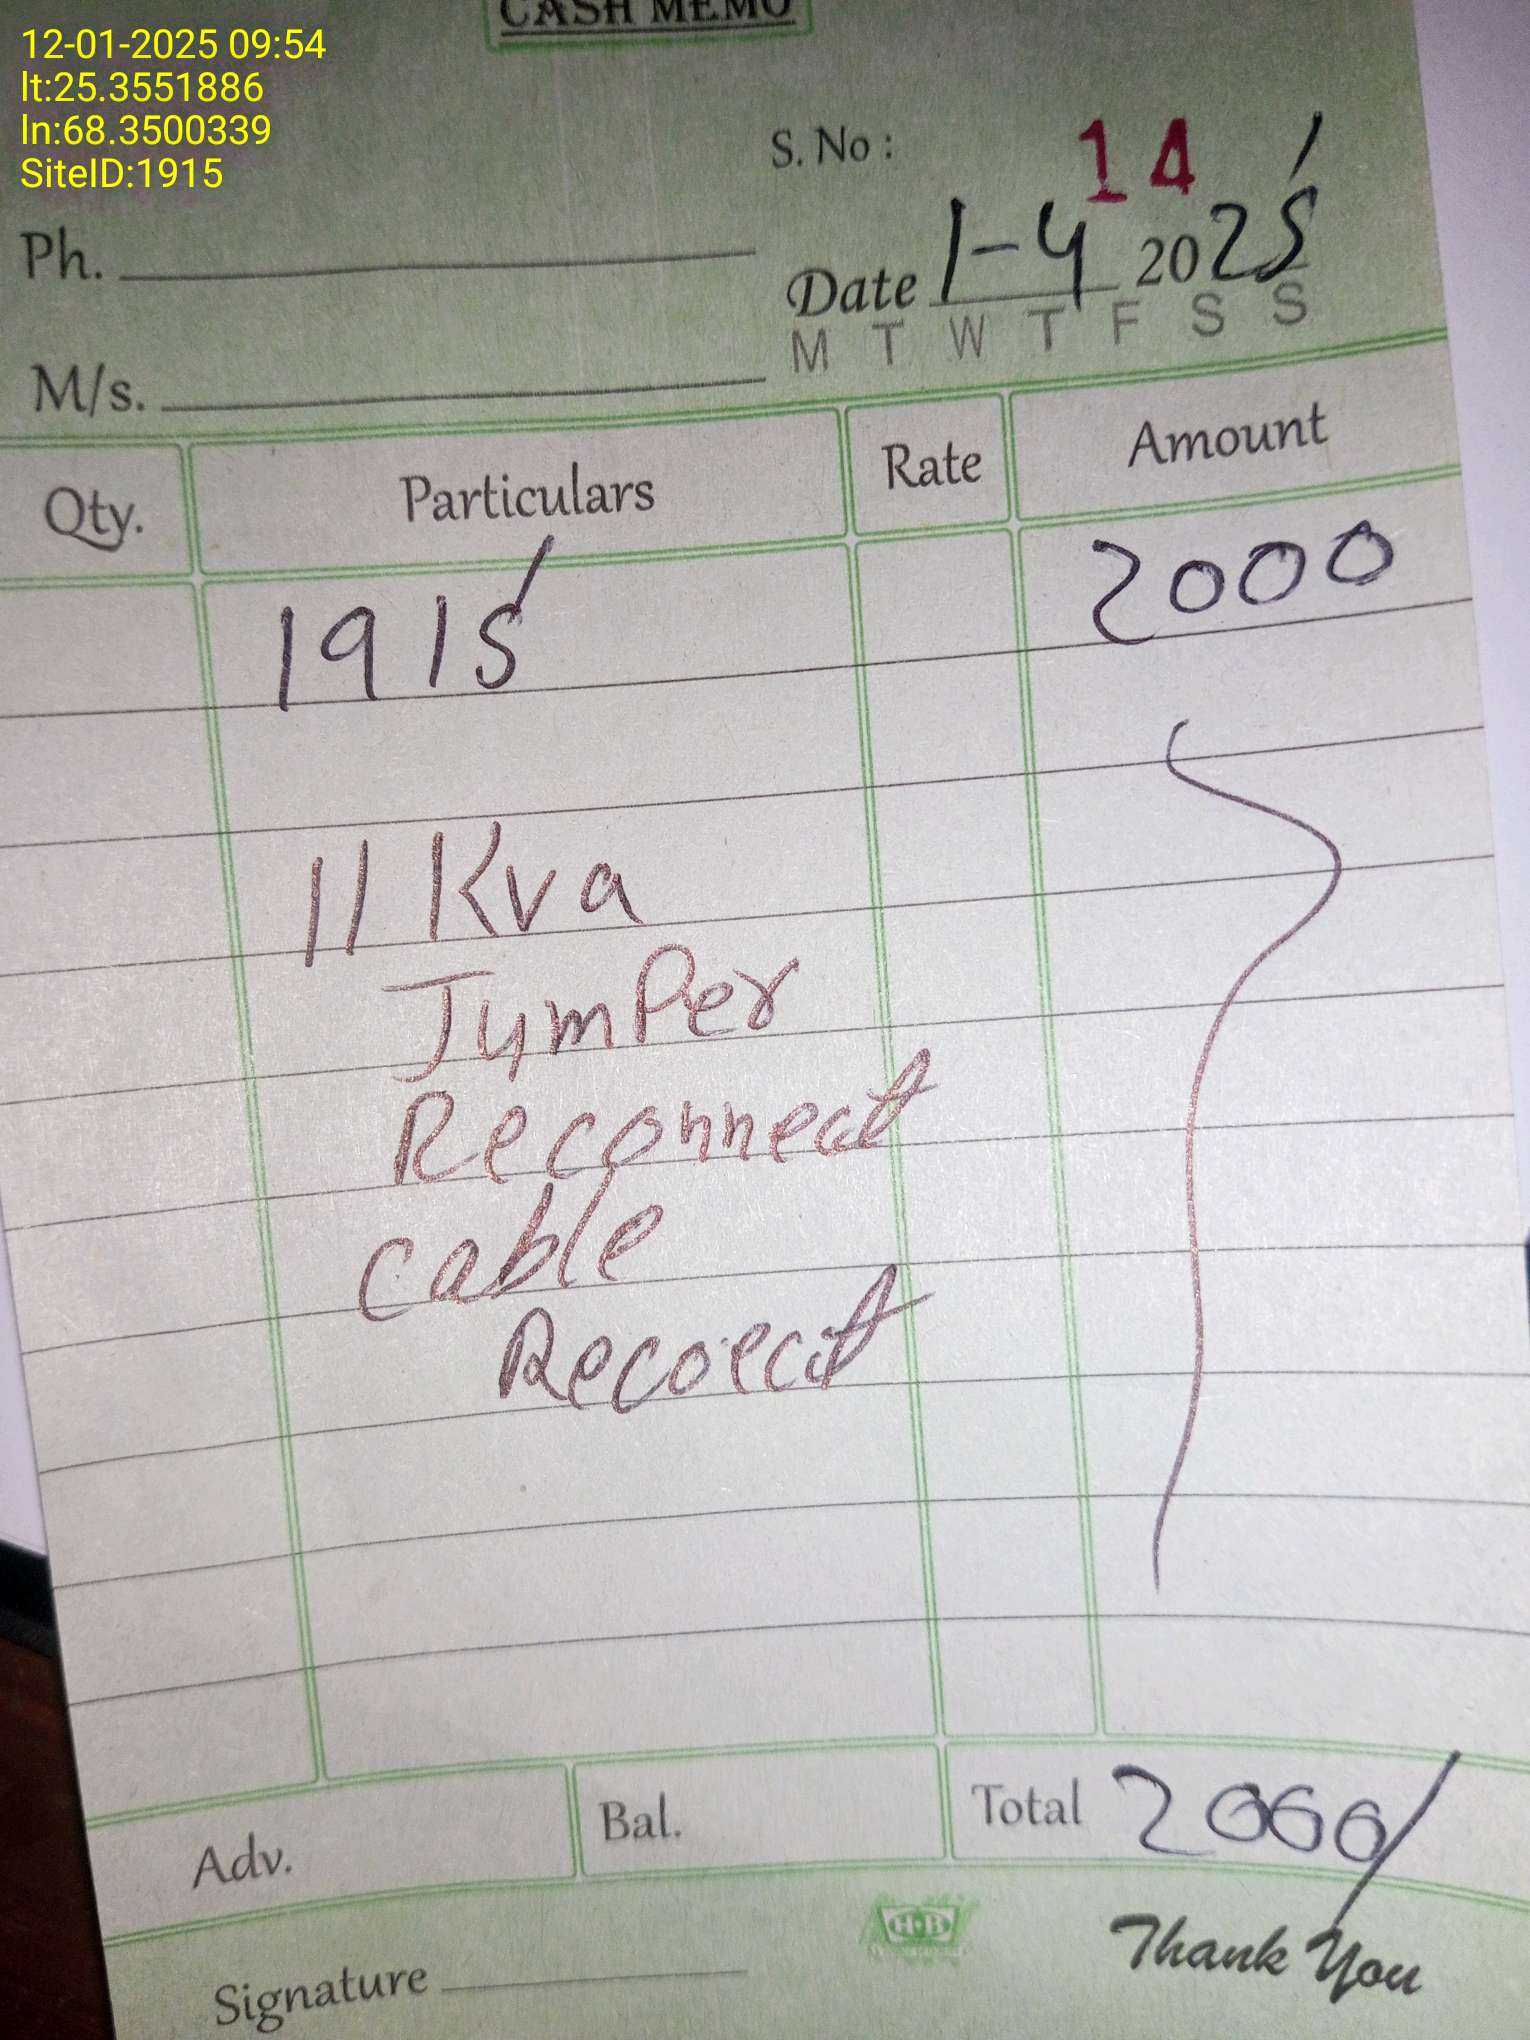 12-01-2025 09:54
lt:25.3551886
ln:68.3500339
SiteID:1915
CASH MEMO
S. No : 14
Ph.
Date 1-4 2025
M T W T F S S
M/s.
Qty. Particulars Rate Amount
1915 2000
11 Kva
Jumper
Reconnect
cable
Recoect
Adv. Bal. Total 2000/
H-B
Signature
Thank You